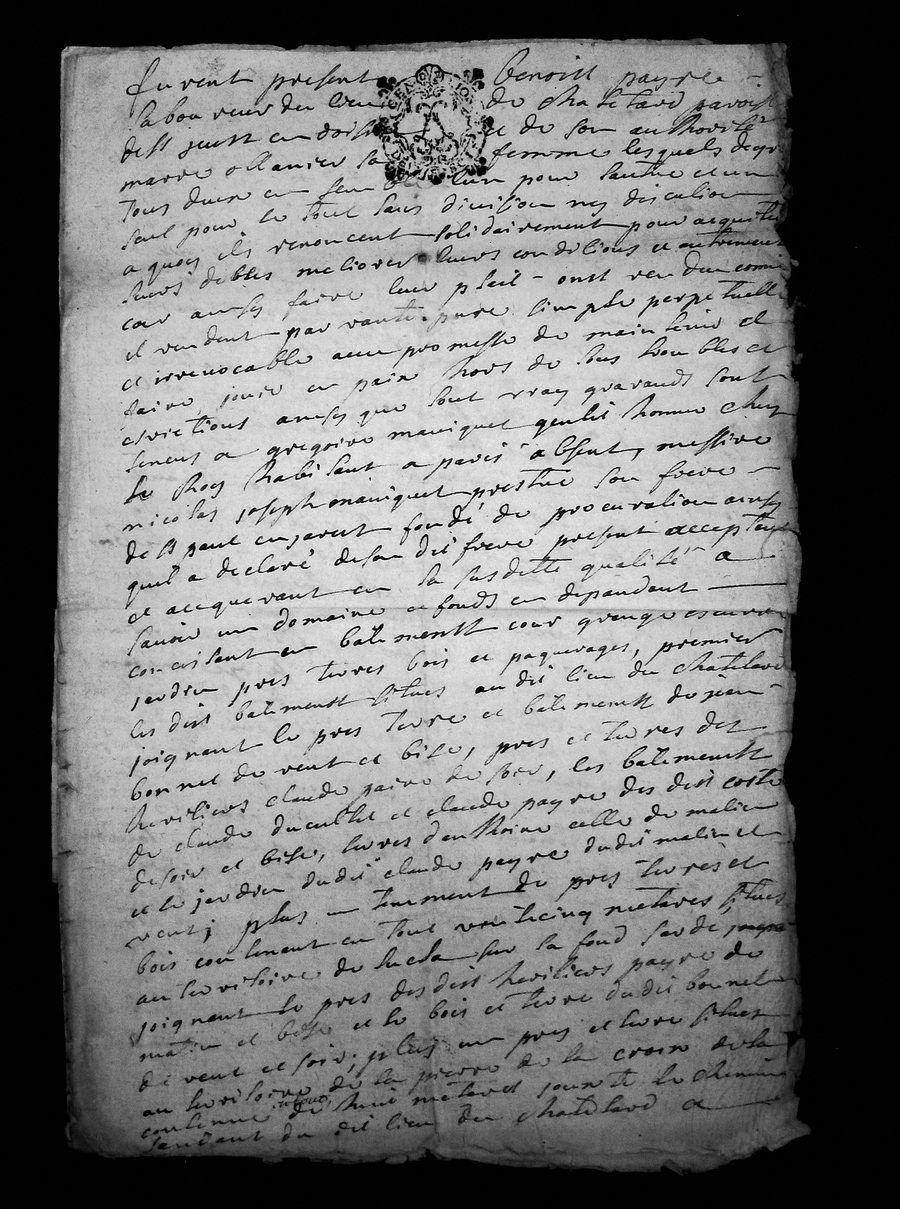 furent present benoist payre
laboureur du lieu de chatelard paroisse
de st just en doiz et de son authorité
marie ollanier sa femme lesquels de gré
tous deux en semble lun pour lautre et un
seul pour le tout sans division ny discution
a quoy ils renoncent solidairement pour acquiter
leurs debtes meliorer leurs conditions et autrement
car ainsy faire leur plait ont vendu comme
il vendent par vante pure simple perpetuelle
et irrevocable avec promesse de maintenir et
faire jouir en paix hors de tous troubles et
evictions ainsy que tout vray guarands sont
tenus a gregoire maniquet gentil homme chez
le Roy habitant a paris absent, messire
nicolas joseph maniquet prestre son frere
de st paul en jarest fondé de procuration ainsy
quil a declaré de son dit frere present acceptant
et acquerant en la susdette qualité a
savoir un domaine et fonds en depandent
consistant en batimentt cour grange escurie
jardin pres terres bois et paquerages, premier
les dits batimentt situés au dit lieu du chatelard
joignant le pres terre et batimentt de jean
bonnet de vent et bise, pres et terres des
heritiers claude paire de soir, les batimentt
de claude ducultet et claude payre des dits costé
de soir et bise, terres danthoine celle de matin
et le jardin dudit claude payre dudit matin et
vent; plus un tenement de pres terres et
bois contenant en tout vente cinq meteres situés
au territoire de lucla sur la fond
joignant le pres des dits heritiers payre de
matin et bise et le bois et terre dudit bonnet
de vent et soir; plus un pres et terre situés
au territoire de la pierre de la croix de la
contenue de huit meteres jouxte le chemin
tendant du dit lieu du chatelard a